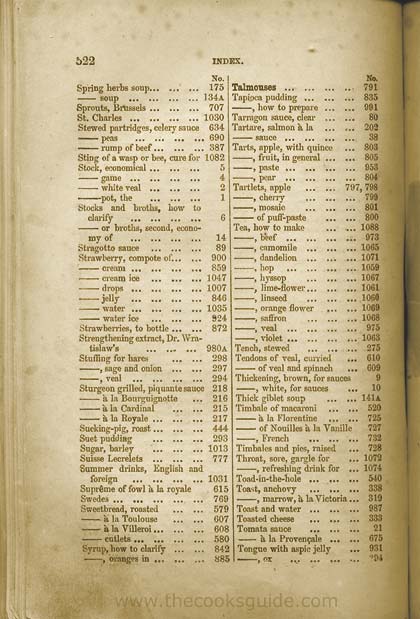 522
INDEX.
No.
Spring herbs soup... ... ... 175
—— soup ... ... ... ... 134A
Sprouts, Brussels ... ... ... 707
St. Charles ... ... ... ... 1030
Stewed partridges, celery sauce 634
—— peas ... ... ... ... 690
—— rump of beef ... ... ... 387
Sting of a wasp or bee, cure for 1082
Stock, economical ... ... ... 5
—— game ... ... ... ... 4
—— white veal ... ... ... 2
——pot, the ... ... ... 1
Stocks and broths, how to
clarify ... ... ... ... 6
—— or broths, second, econo-
my of ... ... ... ... 14
Stragotto sauce ... ... ... 89
Strawberry, compote of... ... 900
—— cream ... ... ... ... 859
—— cream ice ... ... ... 1047
—— drops ... ... ... ... 1007
—— jelly ... ... ... ... 846
—— water ... ... ... ... 1035
—— water ice ... ... ... 924
Strawberries, to bottle ... ... 872
Strengthening extract, Dr. Wra-
tislaw's ... ... ... 980A
Stuffing for hares ... ... 298
——, sage and onion ... ... 297
——, veal ... ... ... ... 294
Sturgeon grilled, piquante sauce 218
—— à la Bourguignotte ... 216
—— à la Cardinal ... ... 215
—— à la Royale ... ... ... 217
Sucking-pig, roast ... ... ... 444
Suet pudding ... ... ... 293
Sugar, barley ... ... ... 1013
Suisse Lecrelets ... ... ... 777
Summer drinks, English and
foreign ... ... ... ... 1031
Suprême of fowl à la royale 615
Swedes ... ... ... ... ... 769
Sweetbread, roasted ... ... 579
—— à la Toulouse ... ... 607
—— à la Villeroi ... ... ... 608
—— cutlets ... ... ... ... 580
Syrup, how to clarify ... ... 842
——, oranges in ... ... ... 885
No.
Talmouses ... ... ... ... 791
Tapioca pudding ... ... ... 835
——, how to prepare ... ... 991
Tarragon sauce, clear ... ... 80
Tartare, salmon à la ... ... 202
—— sauce ... ... ... ... 38
Tarts, apple, with quince ... 803
——, fruit, in general ... ... 805
——, paste ... ... ... ... 953
——, pear ... ... ... ... 804
Tartlets, apple ... ... 797, 798
——, cherry ... ... ... 799
——, mosaic ... ... ... 801
—— of puff-paste ... ... 800
Tea, how to make ... ... 1088
——, beef ... ... ... ... 973
——, camomile ... ... ... 1065
——, dandelion ... ... ... 1071
——, hop ... ... ... ... 1059
——, hyssop ... ... ... 1067
——, lime-flower ... ... ... 1061
——, linseed ... ... ... 1060
——, orange flower ... ... 1069
——, saffron ... ... ... 1068
——, veal ... ... ... ... 975
——, violet ... ... ... ... 1063
Tench, stewed ... ... ... 275
Tendons of veal, curried ... 610
—— of veal and spinach ... 609
Thickening, brown, for sauces 9
——, white, for sauces ... 10
Thick giblet soup ... ... 141A
Timbale of macaroni ... ... 520
—— à la Florentine ... ... 725
—— of Nouilles à la Vanille 727
——, French ... ... ... 732
Timbales and pies, raised ... 728
Throat, sore, gargle for ... 1072
——, refreshing drink for ... 1074
Toad-in-the-hole ... ... ... 540
Toast, anchovy ... ... ... 338
——, marrow, à la Victoria ... 319
Toast and water ... ... ... 987
Toasted cheese ... ... ... 333
Tomata sauce ... ... ... 21
—— à la Provençale ... ... 675
Tongue with aspic jelly ... 931
——, ox ... ... ... ...
www.thecooksguide.com